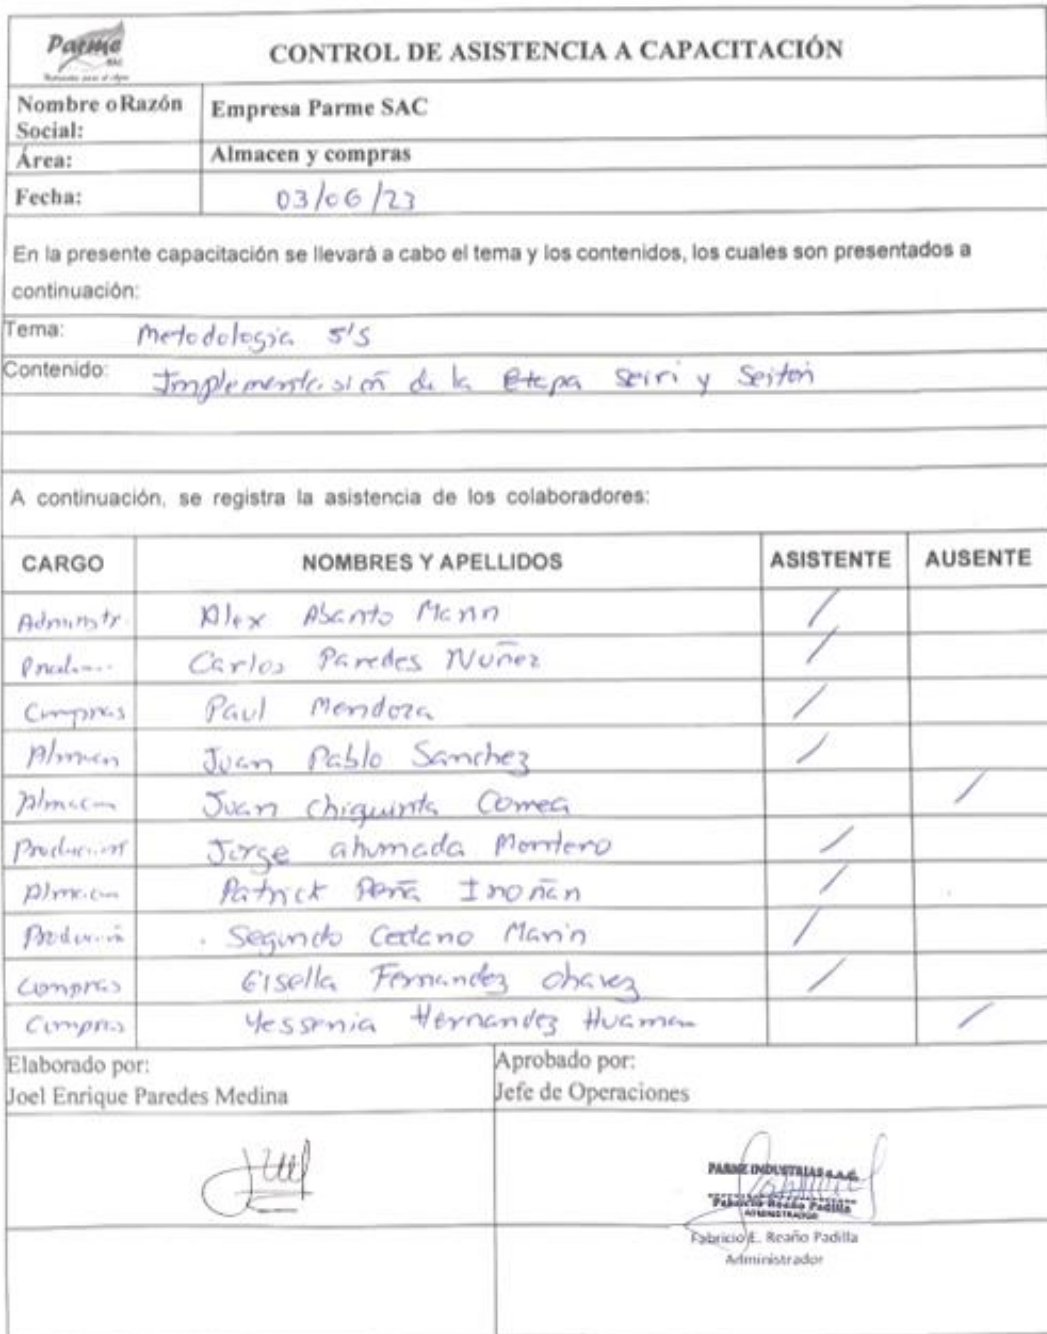 Parme
SAC
CONTROL DE ASISTENCIA A CAPACITACIÓN
Nombre o Razón Social: Empresa Parme SAC
Área: Almacen y compras
Fecha: 03/06/23
En la presente capacitación se llevará a cabo el tema y los contenidos, los cuales son presentados a
continuación:
Tema: Metodologia 5'S
Contenido: Implementasión de la etapa Seiri y Seiton
A continuación, se registra la asistencia de los colaboradores:
CARGO NOMBRES Y APELLIDOS ASISTENTE AUSENTE
Administr. Alex Abanto Marin /
Carlos Paredes Nuñez /
Compras Paul Mendoza /
Almacen Juan Pablo Sanchez /
Almacen Juan Chiquinta Correa /
Produccion Jorge ahumada Montero /
Almacen Patrick Peña Inoñan /
Producción Segundo Marin /
Compras Gisella Fernandez chavez /
Compras Yessenia Hernandez Huaman /
Elaborado por: Aprobado por:
Joel Enrique Paredes Medina Jefe de Operaciones
PARME INDUSTRIAS S.A.C.
Fabricio Reaño Padilla
ADMINISTRADOR
Fabricio E. Reaño Padilla
Administrador